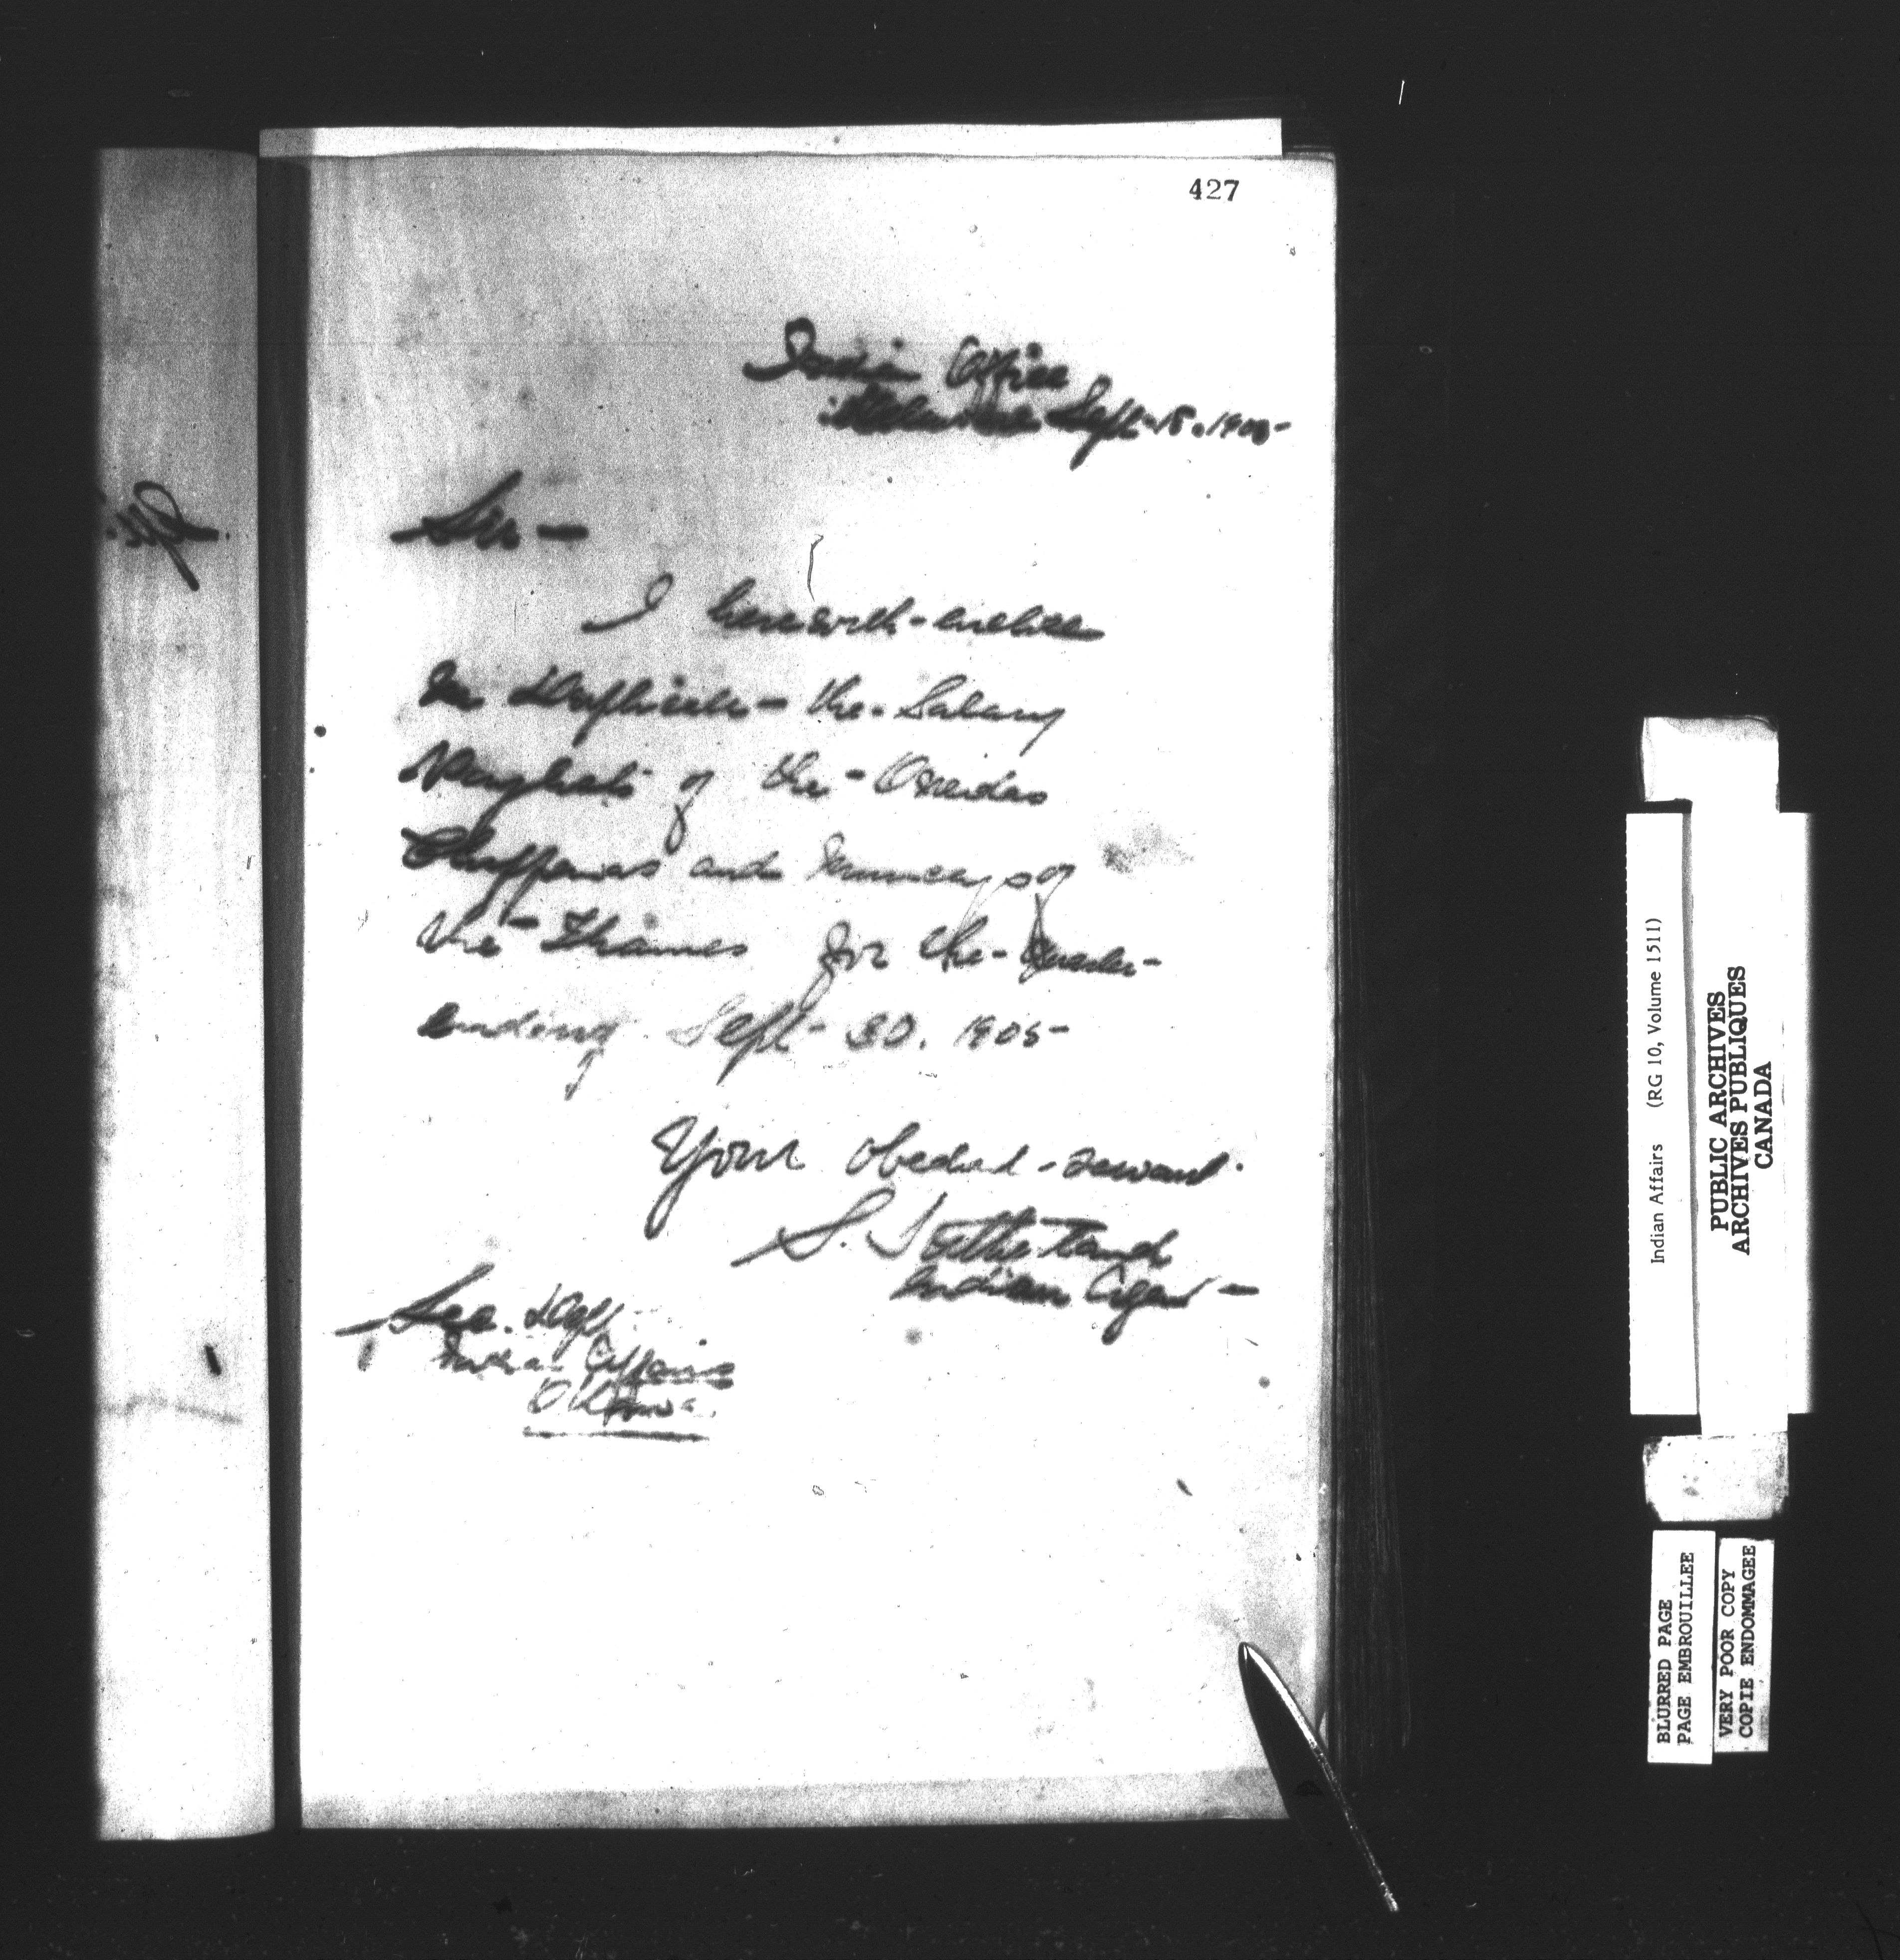 427
Indian Office
Sept 15. 1905
Sir —
I herewith - enclose
in Duplicate - the Salary
Paylists of the Oneidas
Chippewas and Munceys of
the Thames for the Quarter -
ending Sept - 30. 1905 -
Your obedient - servant.
S. Sutherland
Indian Agent —
Sec. Dept
Indian Affairs
Ottawa.
Indian Affairs (RG 10, Volume 1511)
PUBLIC ARCHIVES
ARCHIVES PUBLIQUES
CANADA
BLURRED PAGE
PAGE EMBROUILLEE
VERY POOR COPY
COPIE ENDOMMAGEE